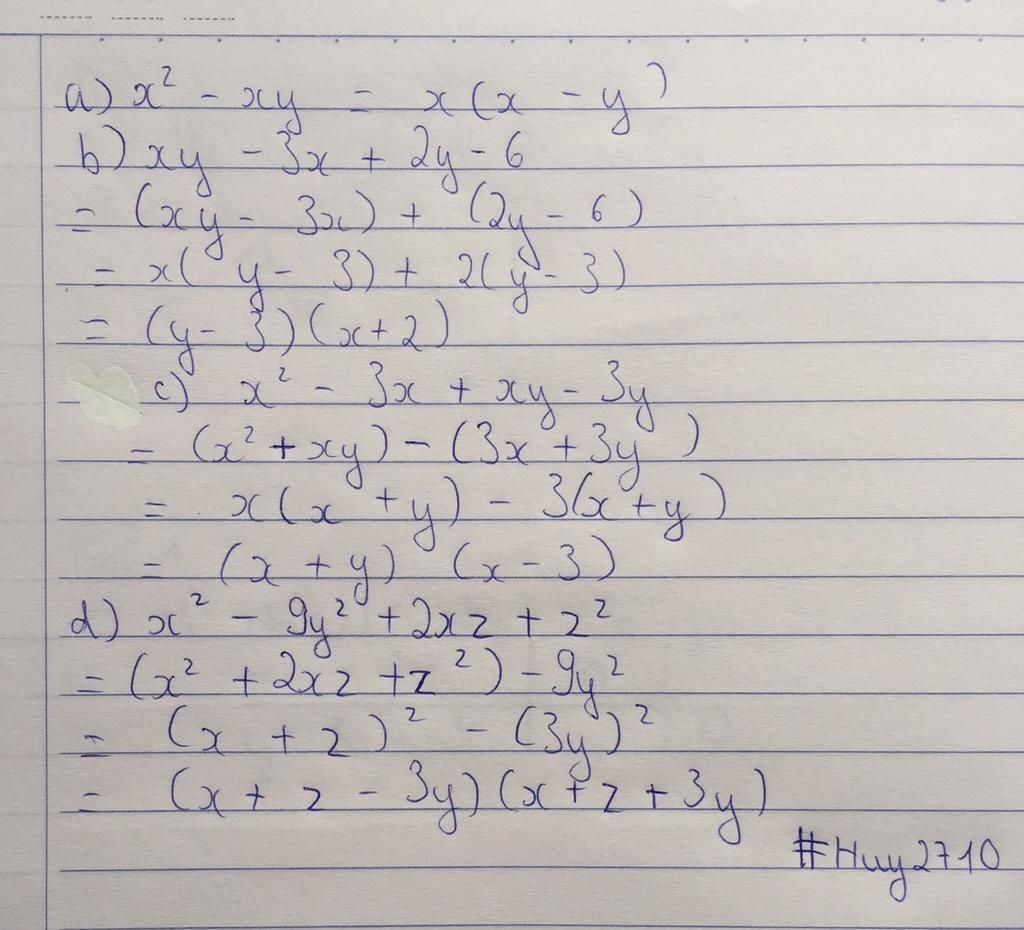 a) x² - xy = x(x - y)
b) xy - 3x + 2y - 6
= (xy - 3x) + (2y - 6)
= x( y - 3) + 2(y - 3)
= (y - 3)(x + 2)
c) x² - 3x + xy - 3y
= (x² + xy) - (3x + 3y)
= x(x + y) - 3(x + y)
= (x + y) (x - 3)
d) x² - 9y² + 2xz + z²
= (x² + 2xz + z²) - 9y²
= (x + z)² - (3y)²
= (x + z - 3y)(x + z + 3y)
#Huy2710